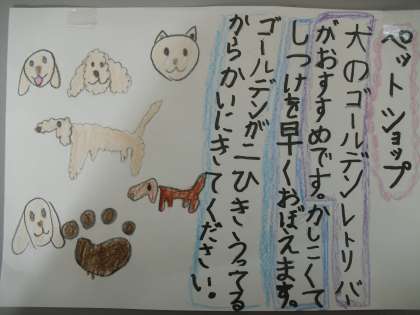 ペットショップ
犬のゴールデンレトリバー
がおすすめです。かしこくて
しつけを早くおぼえます。
ゴールデンが二ひきうってる
からかいにきてください。